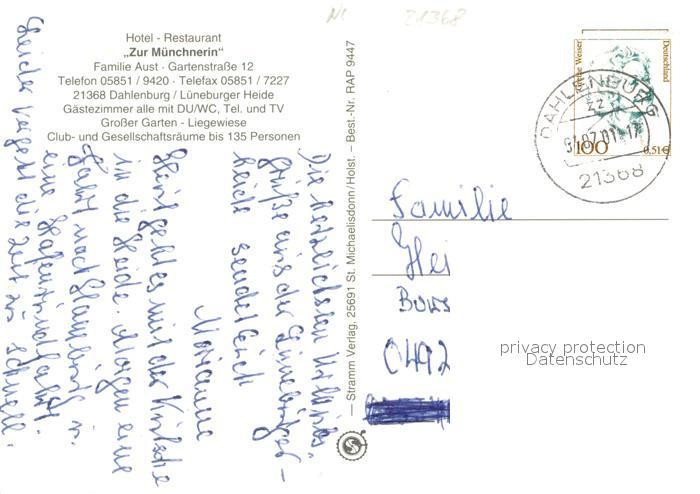 21368
Hotel - Restaurant
„Zur Münchnerin"
Familie Aust · Gartenstraße 12
Telefon 05851 / 9420 · Telefax 05851 / 7227
21368 Dahlenburg / Lüneburger Heide
Gästezimmer alle mit DU/WC, Tel. und TV
Großer Garten - Liegewiese
Club- und Gesellschaftsräume bis 135 Personen
Die herzlichsten
Grüße aus der Lüneburger-
heide sendet Euch
Marianne
Heut geht es mit der Kutsche
in die Heide. Morgen eine
Fahrt nach Hamburg u.
eine Hafenrundfahrt.
Leider vergeht die Zeit zu schnell.
— Stramm Verlag, 25691 St. Michaelisdonn/Holst. – Best.-Nr. RAP 9447
Deutschland
100
0,51 €
DAHLENBURG
21368
Familie
Hei
0492
privacy protection
Datenschutz